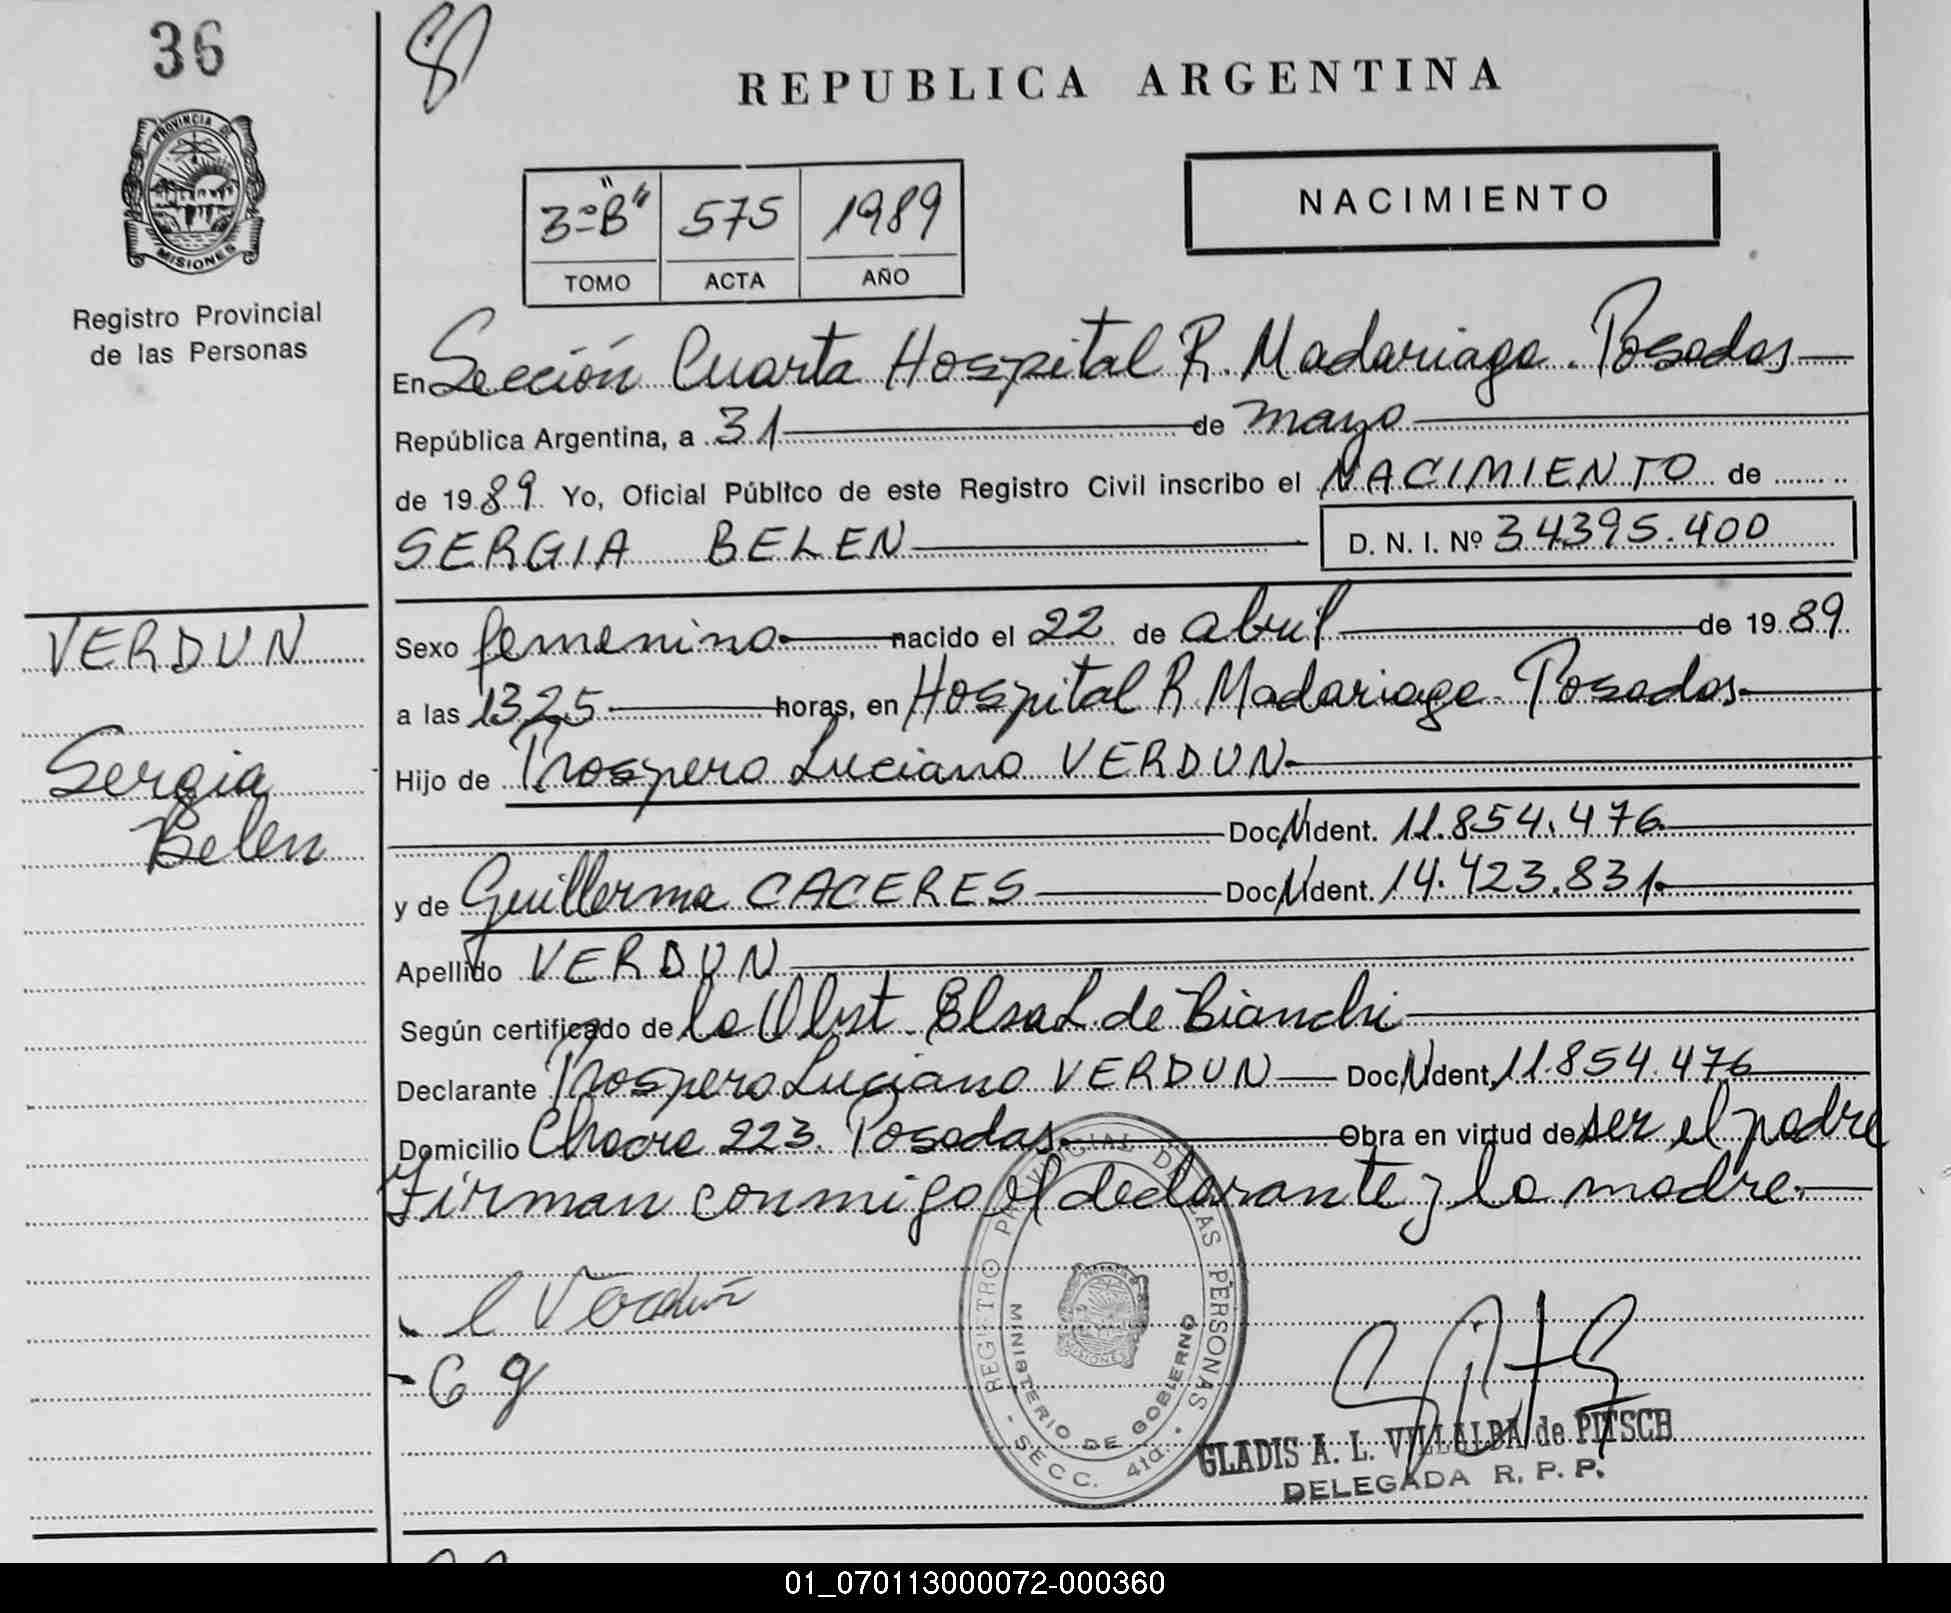 36
PROVINCIA DE
MISIONES
Registro Provincial
de las Personas
REPUBLICA ARGENTINA
3º "B" 575 1989
TOMO ACTA AÑO
NACIMIENTO
En Sección Cuarta Hospital R. Madariaga. Posadas
República Argentina, a 31 de mayo
de 1989 Yo, Oficial Público de este Registro Civil inscribo el NACIMIENTO de
SERGIA BELEN D. N. I. Nº 34395.400
VERDUN
Sergia
Belen
Sexo femenino nacido el 22 de abril de 1989
a las 1325 horas, en Hospital R Madariaga. Posadas
Hijo de Prospero Luciano VERDUN
Doc. N ident. 11.854.476
y de Guillerma CACERES Doc. N ident. 14.423.831
Apellido VERDUN
Según certificado de la Obst. Elsa L. de Bianchi
Declarante Prospero Luciano VERDUN Doc. N ident. 11.854.476
Domicilio Chacra 223. Posadas. Obra en virtud de ser el padre
Firman conmigo el declarante y la madre.
l Verdún
C g
REGISTRO PROVINCIAL DE LAS PERSONAS - SECC. 4ta.
MINISTERIO DE GOBIERNO
MISIONES
GLADIS A. L. VILLALBA de PITSCH
DELEGADA R. P. P.
01_070113000072-000360